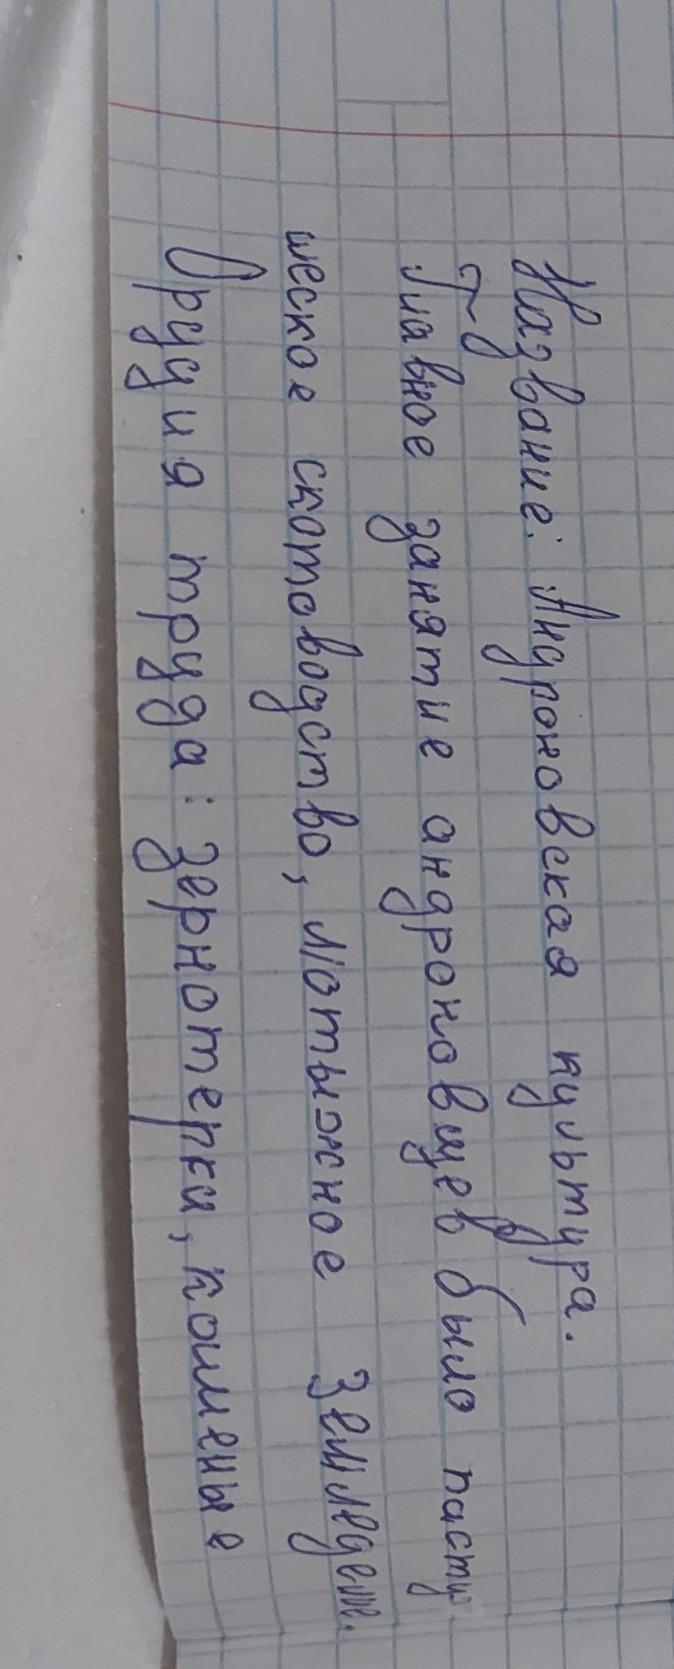 Название: Андроновская культура.
Главное занятие андроновцев было пасту-
шеское скотоводство, мотыжное земледели.
Орудия труда: зернотерки,